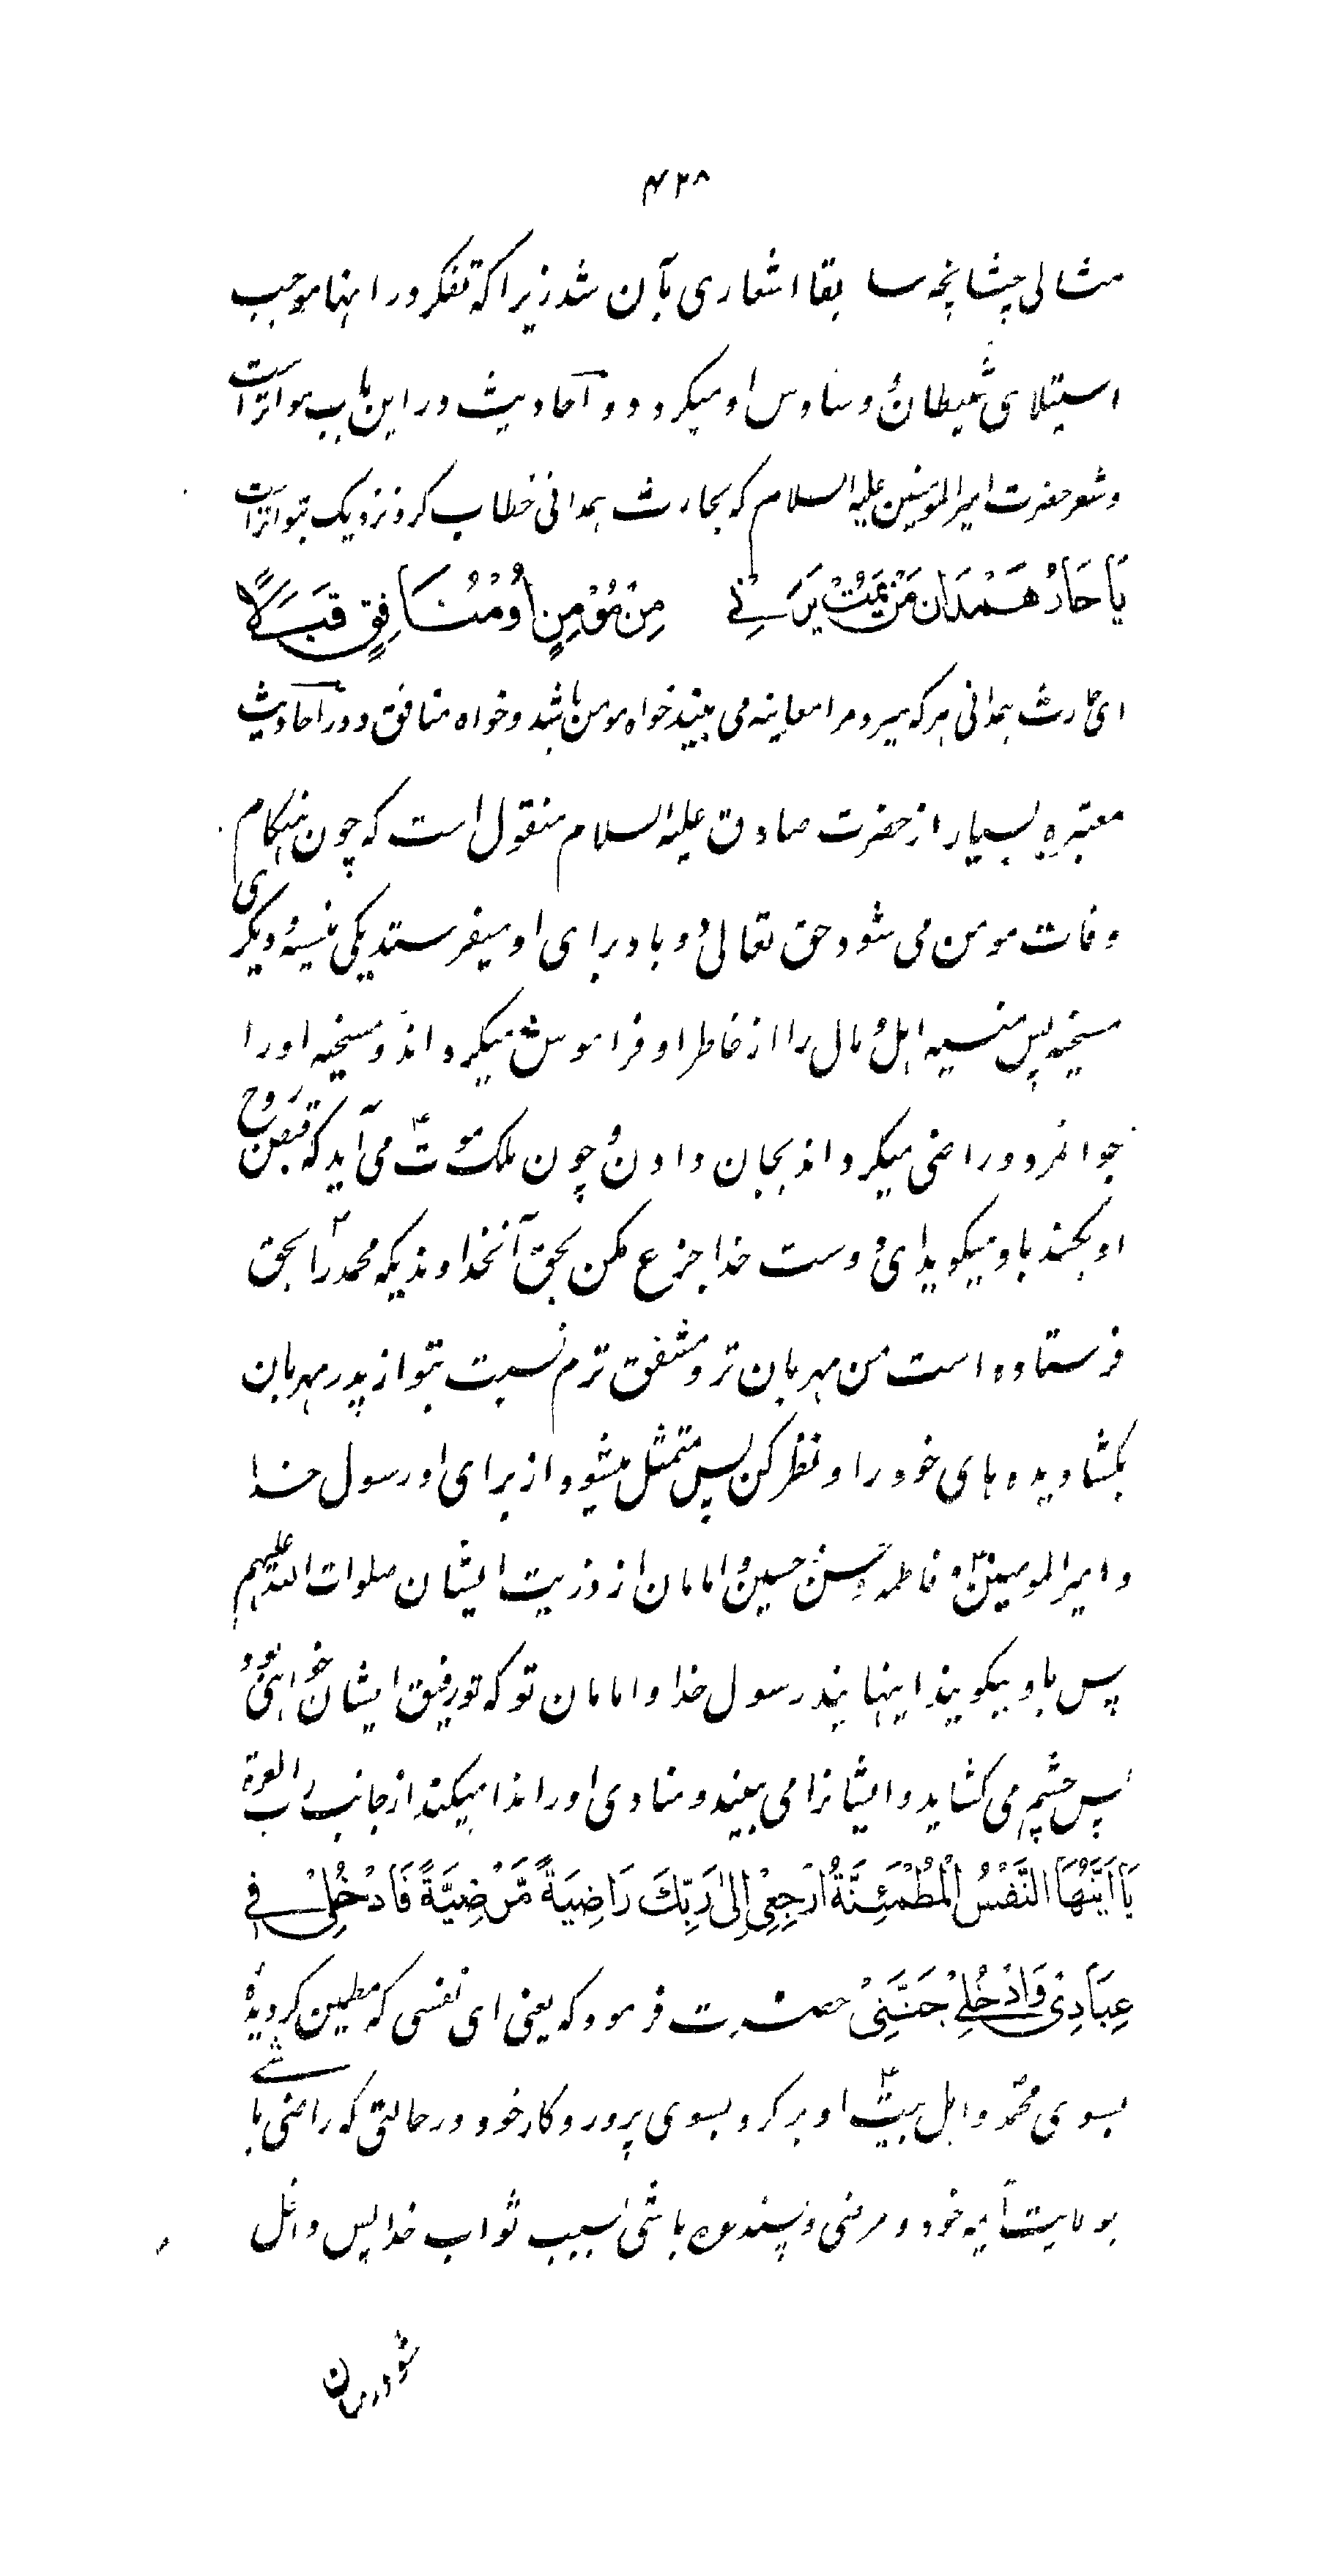 ۴۲۸
مثالی چنانچه سابقا اشعاری بآن شد زیرا که تفکر در اینها موجب
استیلای شیطان و وساوس او میگردد و احادیث در این باب متواتر است
و شعر حضرت امیرالمومنین علیه السلام که بحارث همدانی خطاب کرد نزدیک بتواتر است
یَا حَارُ هَمْدَان مَنْ یَمُتْ یَرَنِے مِنْ مُؤْمِنٍ اَوْ مُنَافِقٍ قَبَلًا
ای حارث همدانی هر که بمیرد مرا معاینه می بیند خواه مومن باشد و خواه منافق و در احادیث
معتبره بسیار از حضرت صادق علیه السلام منقول است که چون هنگام
وفات مومن می شود حق تعالی دو باد برای او میفرستد یکی منسیه و دیگری
مسخیه پس منسیه اهل و مال را از خاطر او فراموش میگرداند و مسخیه او را
جوانمرد و راضی میگرداند بجان دادن و چون ملک موت می آید که قبض روح
او بکند باو میگوید ای دوست خدا جزع مکن بحق آنخداوندیکه محمد را بحق
فرستاده است من مهربان تر و مشفق ترم نسبت بتو از پدر مهربان
بکشا دیده های خود را و نظر کن پس متمثل میشود از برای او رسول خدا
و امیرالمومنین و فاطمه و حسن و حسین و امامان از ذریت ایشان صلوات الله علیهم
پس باو میگویند اینهایند رسول خدا و امامان تو که تو رفیق ایشان خواهی بود
پس چشم می کشاید و ایشانرا می بیند و منادی او را ندا میکند از جانب رب العزة
یَا اَیَّتُهَا النَّفْسُ الْمُطْمَئِنَّةُ ارْجِعِیْ اِلیٰ رَبِّكَ رَاضِیَةً مَّرْضِیَّةً فَادْخُلِیْ فِی
عِبَادِیْ وَادْخُلِےْ جَنَّتِیْ حضرت فرمود که یعنی ای نفسی که مطمین گردیدهٔ
بسوی محمد و اهل بیت او برگرد بسوی پروردگار خود در حالتی که راضی باشے
بولایت ایمه خود و مرضی و پسندیده باشی بسبب ثواب خدا پس داخل
شو در میان